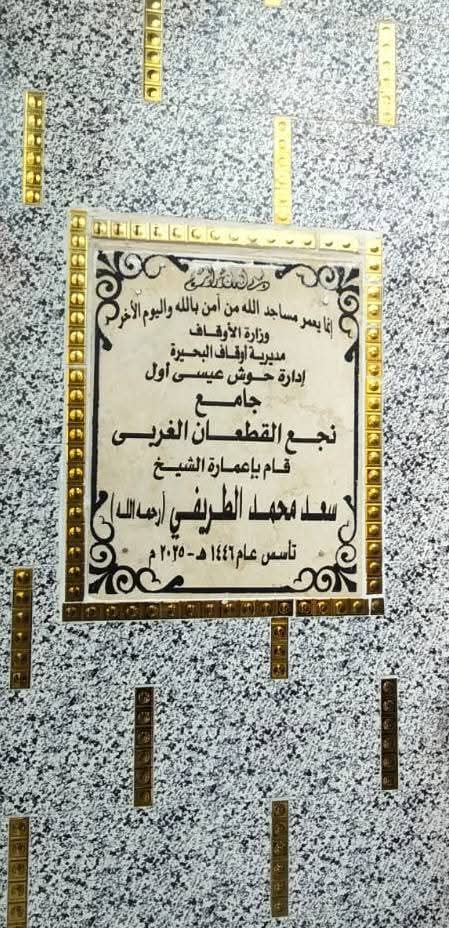 بسم الله الرحمن الرحيم
إنما يعمر مساجد الله من آمن بالله واليوم الآخر
وزارة الأوقاف
مديرية أوقاف البحيرة
إدارة حوش عيسى أول
جامع
نجع القطعان الغربى
قام بإعمارة الشيخ
سعد محمد الطريفي (رحمه الله)
تأسس عام ١٤٤٦ هـ - ٢٠٢٥ م